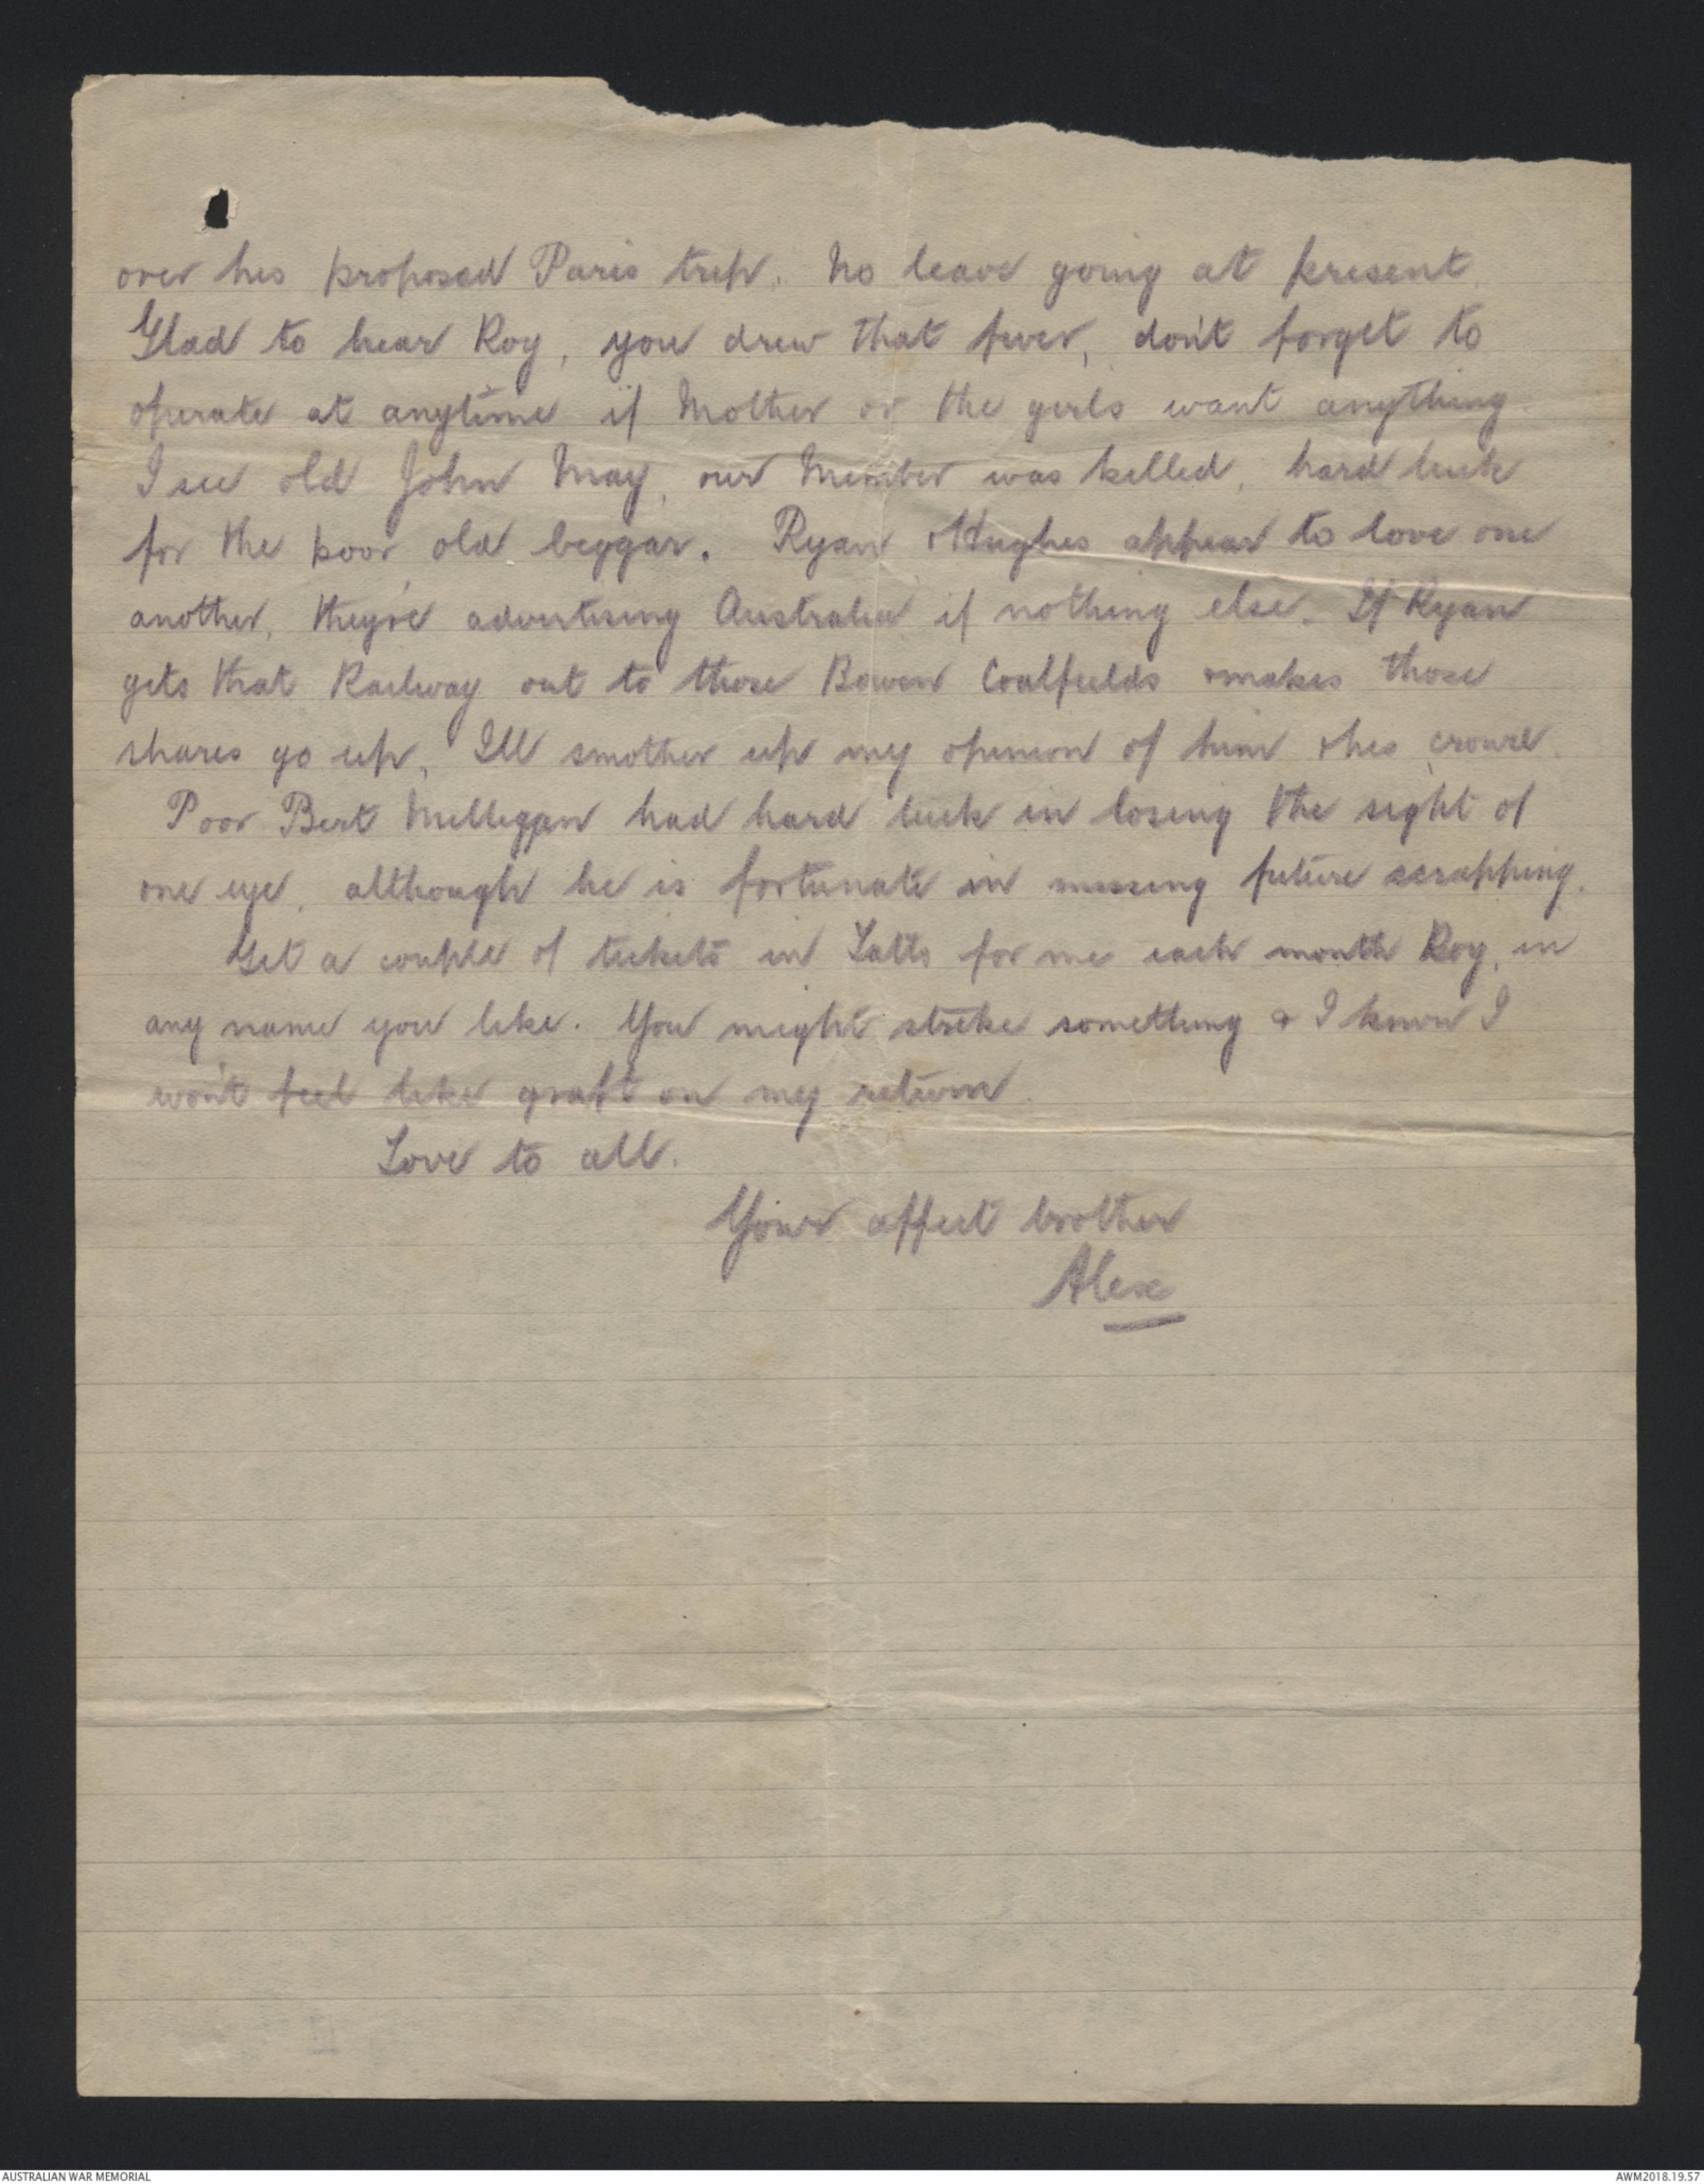 over his proposed Paris trip. No leave going at present.
Glad to hear Roy, you drew that fiver, don't forget to
operate at anytime if Mother or the girls want anything.
I see old John May, our Member was killed, hard luck
for the poor old beggar. Ryan & Hughes appear to love one
another, they're advertising Australia if nothing else. If Ryan
gets that Railway out to those Bowen Coalfields & makes those
shares go up, I'll smother up my opinion of him & his crowd.
Poor Bert Milligan had hard luck in losing the sight of
one eye, although he is fortunate in missing future scrapping.
Get a couple of tickets in Tatts for me each month Roy, in
any name you like. You might strike something & I know I
won't feel like graft on my return.
Love to all.
Your affect brother
Alex
AUSTRALIAN WAR MEMORIAL
AWM2018.19.57